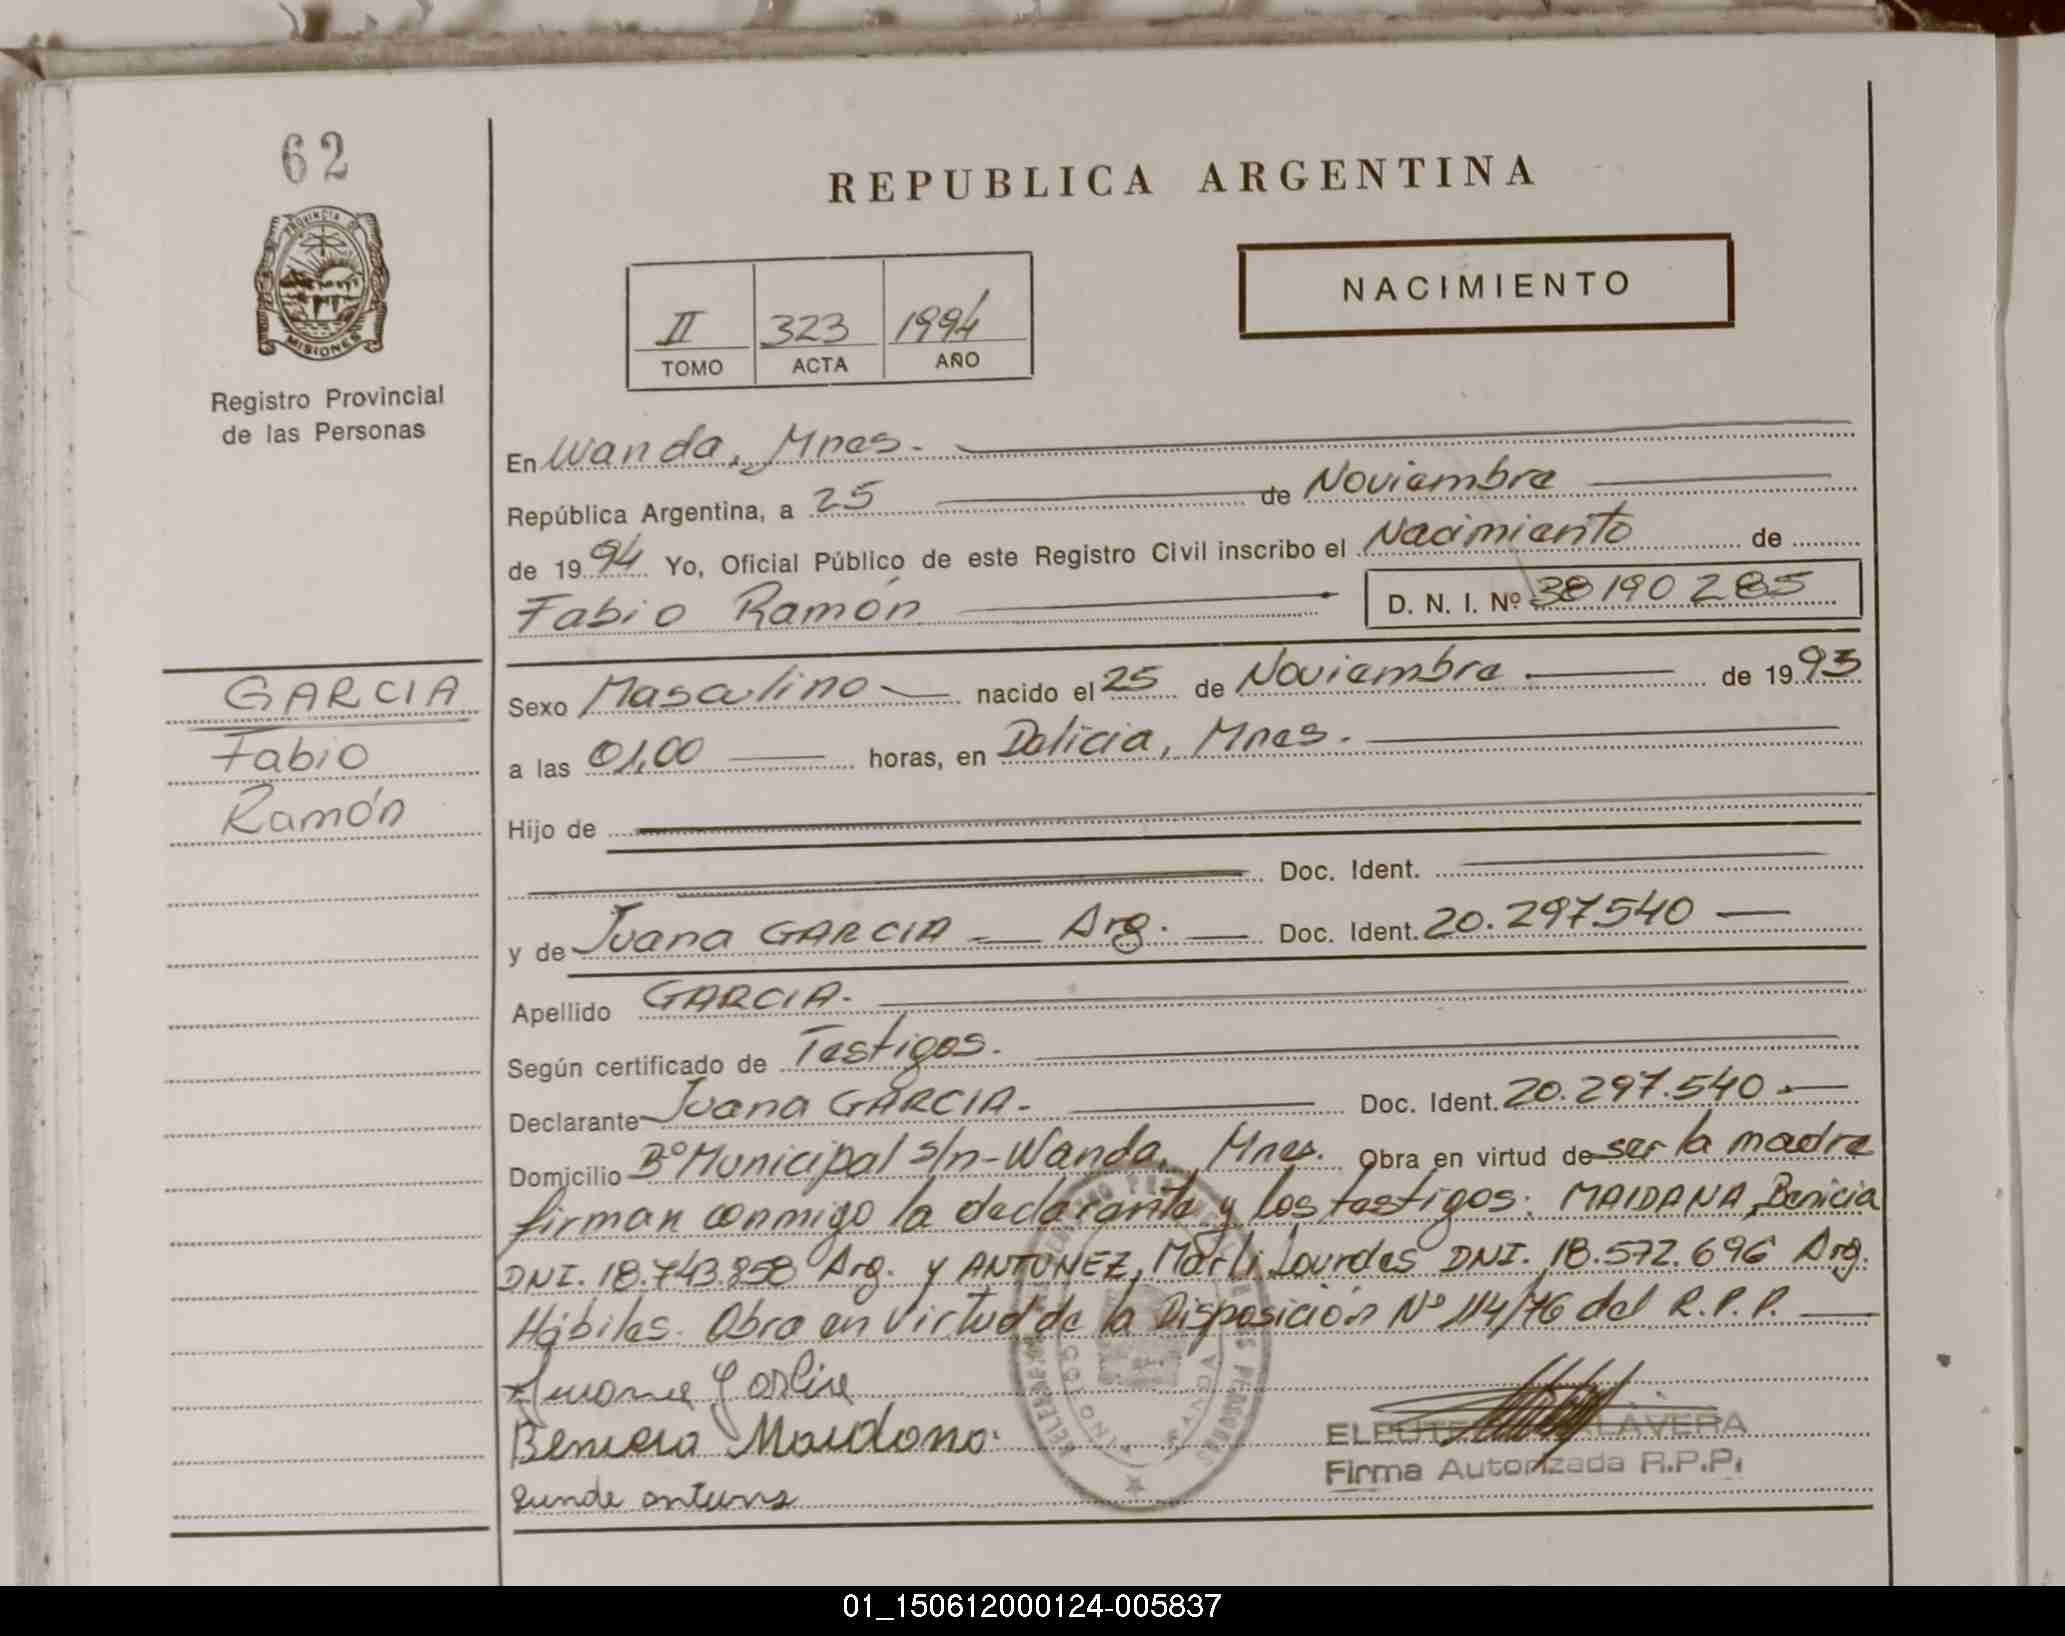 62
PROVINCIA DE
MISIONES
Registro Provincial
de las Personas
REPUBLICA ARGENTINA
NACIMIENTO
II 323 1994
TOMO ACTA AÑO
En Wanda, Mnes.
República Argentina, a 25 de Noviembre
de 1994 Yo, Oficial Público de este Registro Civil inscribo el Nacimiento de
Fabio Ramón D. N. I. Nº 38190285
GARCIA
Fabio
Ramón
Sexo Masculino nacido el 25 de Noviembre de 1993
a las 01,00 horas, en Delicia, Mnes.
Hijo de
Doc. Ident.
y de Juana GARCIA Arg. Doc. Ident. 20.297.540
Apellido GARCIA.
Según certificado de Testigos.
Declarante Juana GARCIA. Doc. Ident. 20.297.540
Domicilio Bº Municipal s/n - Wanda, Mnes. Obra en virtud de ser la madre
firman conmigo la declarante y los testigos: MAIDANA, Benicia
DNI. 18.743.858 Arg. y ANTUNEZ, Marli Lourdes DNI. 18.572.696 Arg.
Hábiles. Obra en virtud de la Disposición Nº 114/76 del R.P.P.
WANDA
Firma Autorizada R.P.P.
01_150612000124-005837